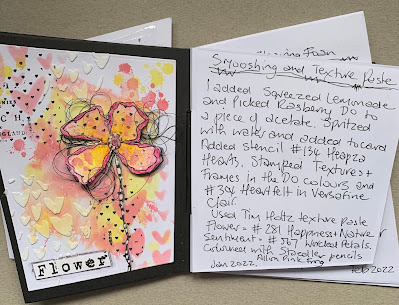 CH
ENGLAND
Flower
Foam
Smooshing and Texture Paste
I added Squeezed Lemonade
and Picked Rasberry DO to
a piece of acetate. Spritzed
with water and added to card
Added stencil #134 Heapza
Hearts. Stamped Textures +
Frames in the DO colours and
#304 Heartfelt in Versafine
Clair.
Used Tim Holtz texture paste
Flower = # 281 Happiness + Nature
Sentiment = # 567 Wicked Petals.
Coloured with Staedler pencils
Jan 2022. Alison Pink Frog
Feb 2022